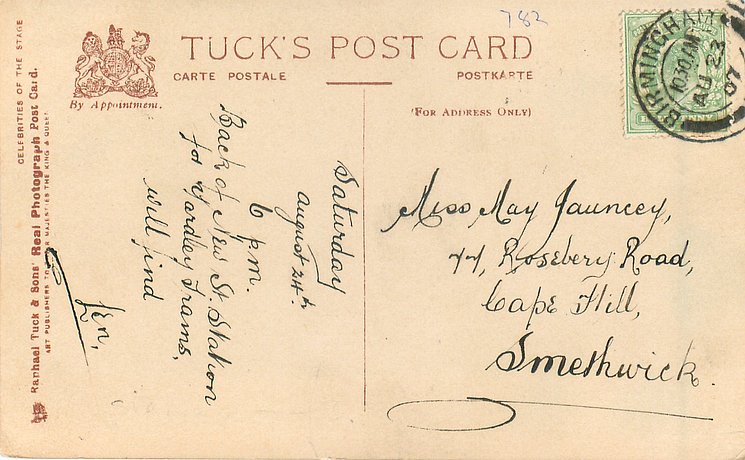 782
TUCK'S POST CARD
CARTE POSTALE
POSTKARTE
By Appointment.
(FOR ADDRESS ONLY)
BIRMINGHAM
10.30 AM
AU 23
07
CELEBRITIES OF THE STAGE
Raphael Tuck & Sons' Real Photograph Post Card.
ART PUBLISHERS TO THEIR MAJESTIES THE KING & QUEEN
Saturday
August 24th
6 p.m.
Back of New St. Station
for Yardley Trams,
will find
Len.
Miss May Jauncey,
77, Rosebery Road,
Cape Hill,
Smethwick.